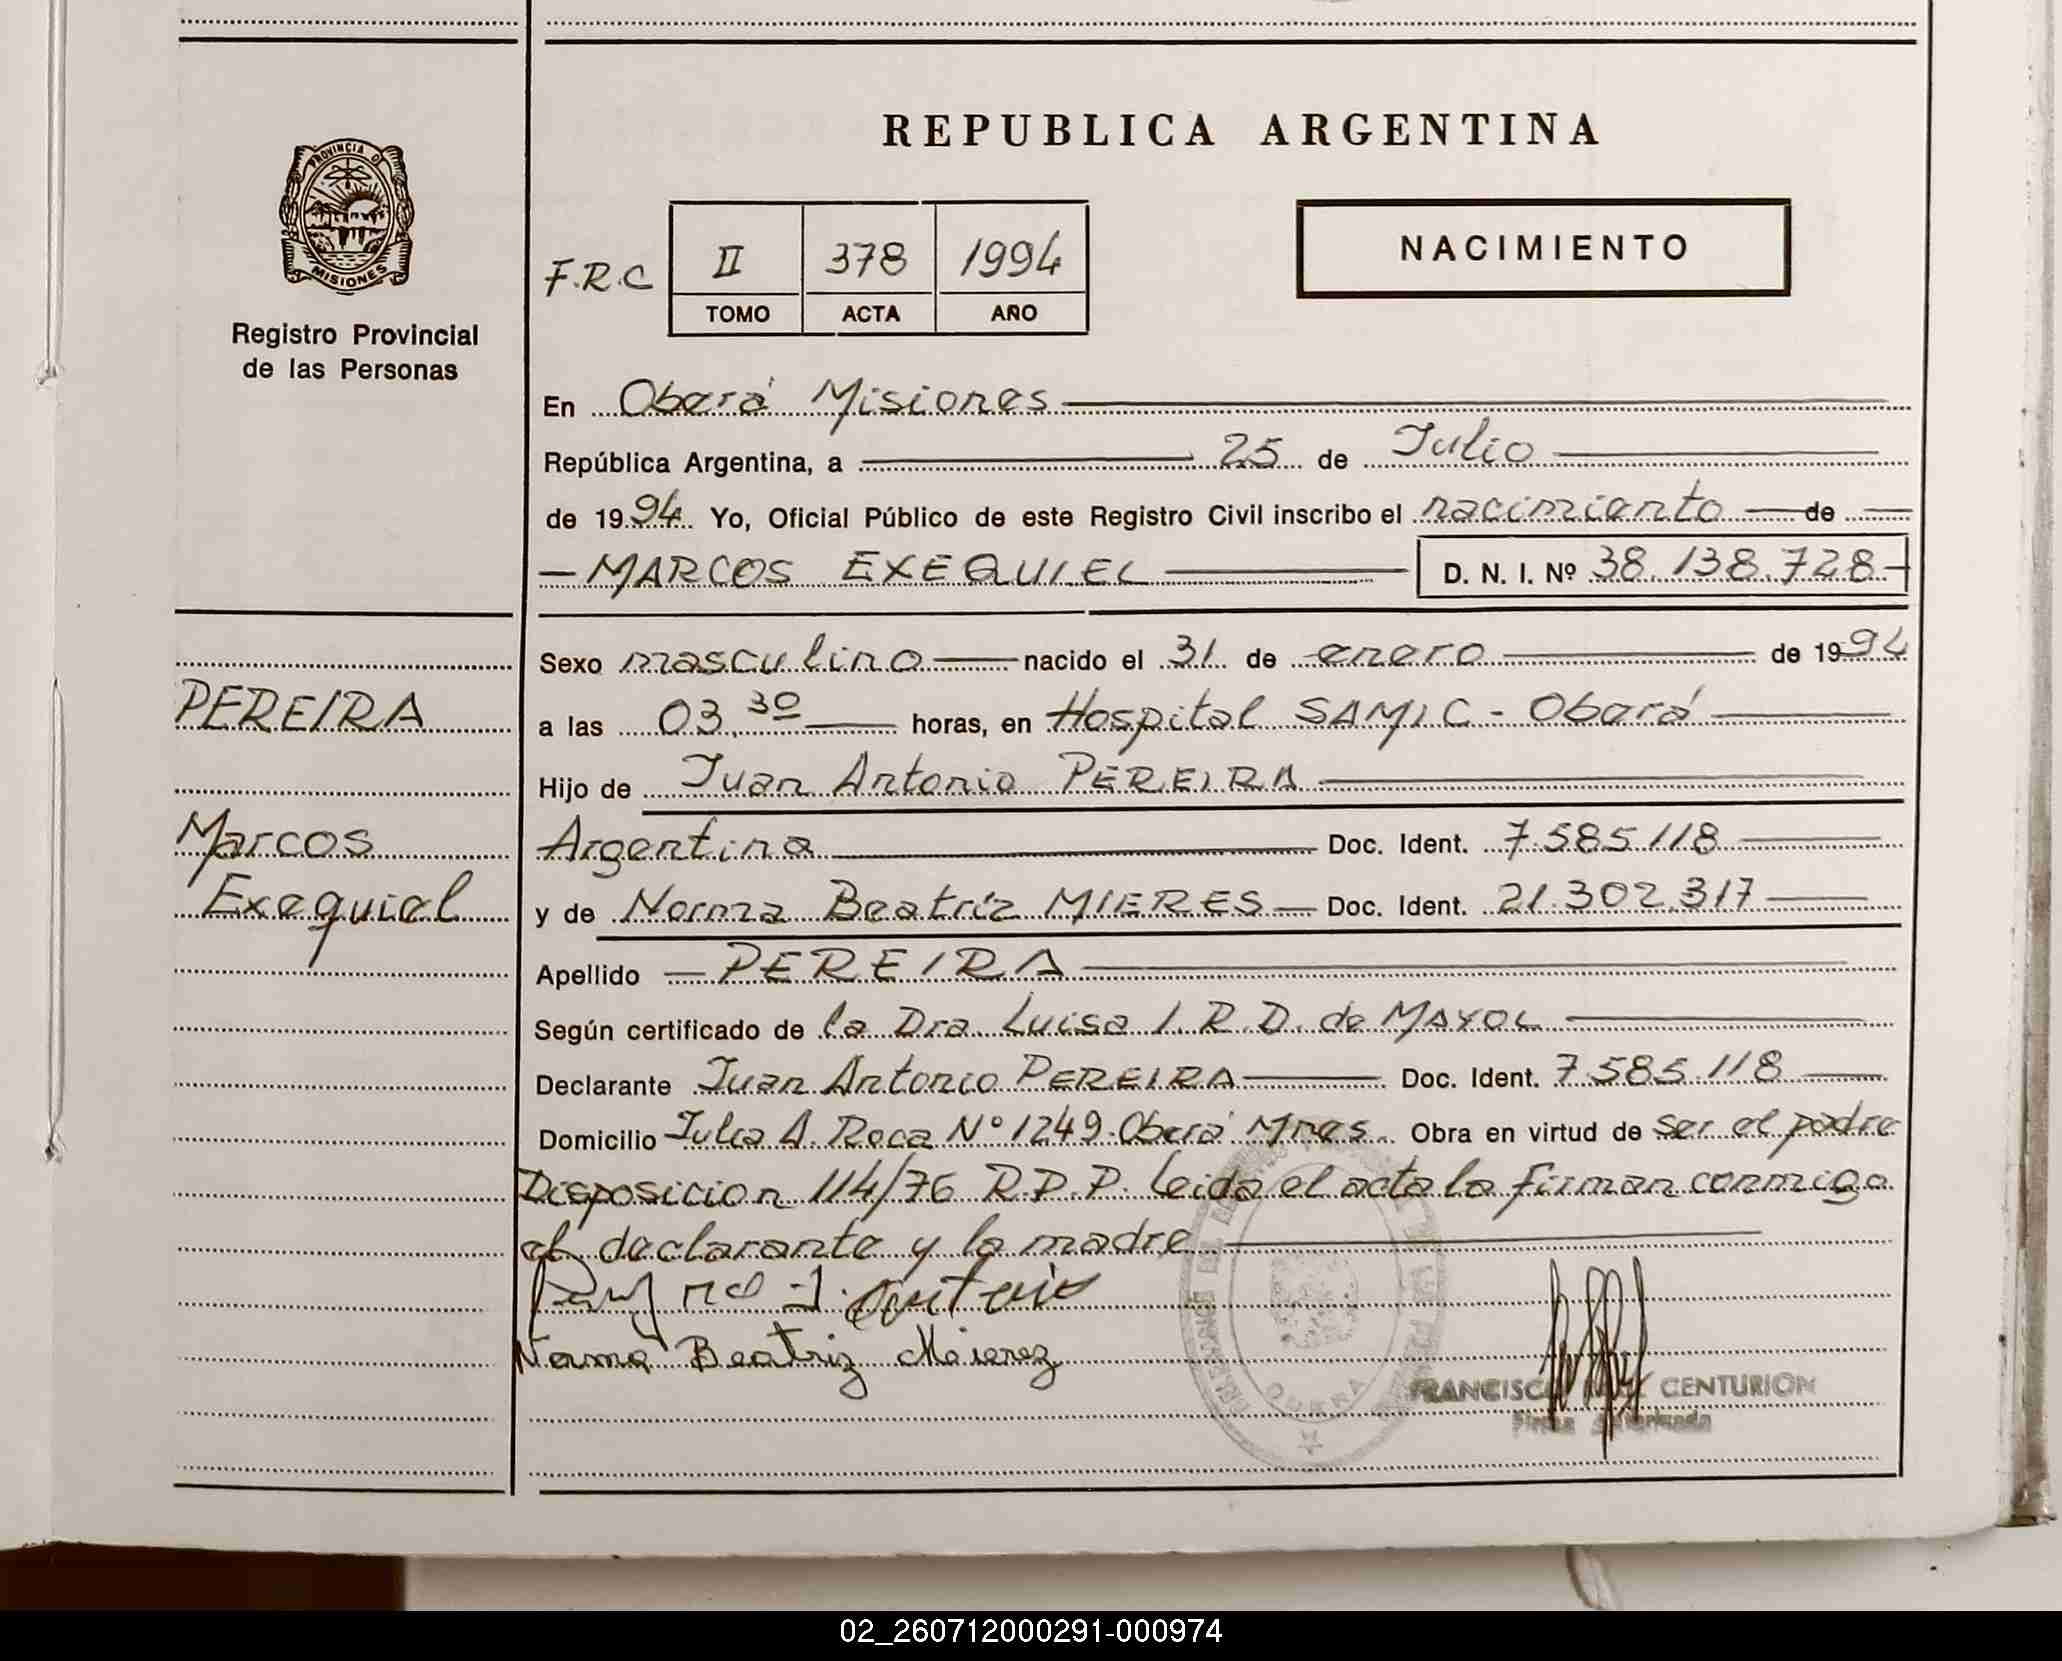 REPUBLICA ARGENTINA
PROVINCIA D
MISIONES
Registro Provincial
de las Personas
F.R.C
II 378 1994
TOMO ACTA AÑO
NACIMIENTO
En Oberá Misiones
República Argentina, a 25 de Julio
de 1994 Yo, Oficial Público de este Registro Civil inscribo el nacimiento de
MARCOS EXEQUIEL D. N. I. Nº 38.138.728
Sexo masculino nacido el 31 de enero de 1994
PEREIRA
a las 03.30 horas, en Hospital SAMIC - Oberá
Hijo de Juan Antonio PEREIRA
Marcos
Exequiel
Argentina Doc. Ident. 7.585.118
y de Norma Beatríz MIERES Doc. Ident. 21.302.317
Apellido PEREIRA
Según certificado de la Dra. Luisa I. R. D. de MAYOL
Declarante Juan Antonio PEREIRA Doc. Ident. 7.585.118
Domicilio Julio A. Roca Nº 1249. Oberá Mnes. Obra en virtud de ser el padre
Disposicion 114/76 R.P.P. Leida el acta la firman conmigo
el declarante y la madre
Norma Beatriz Mierez
FRANCISCO CENTURION
Firma Autorizada
02_260712000291-000974